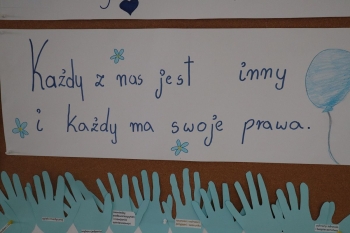 Każdy z nas jest inny
i każdy ma swoje prawa.